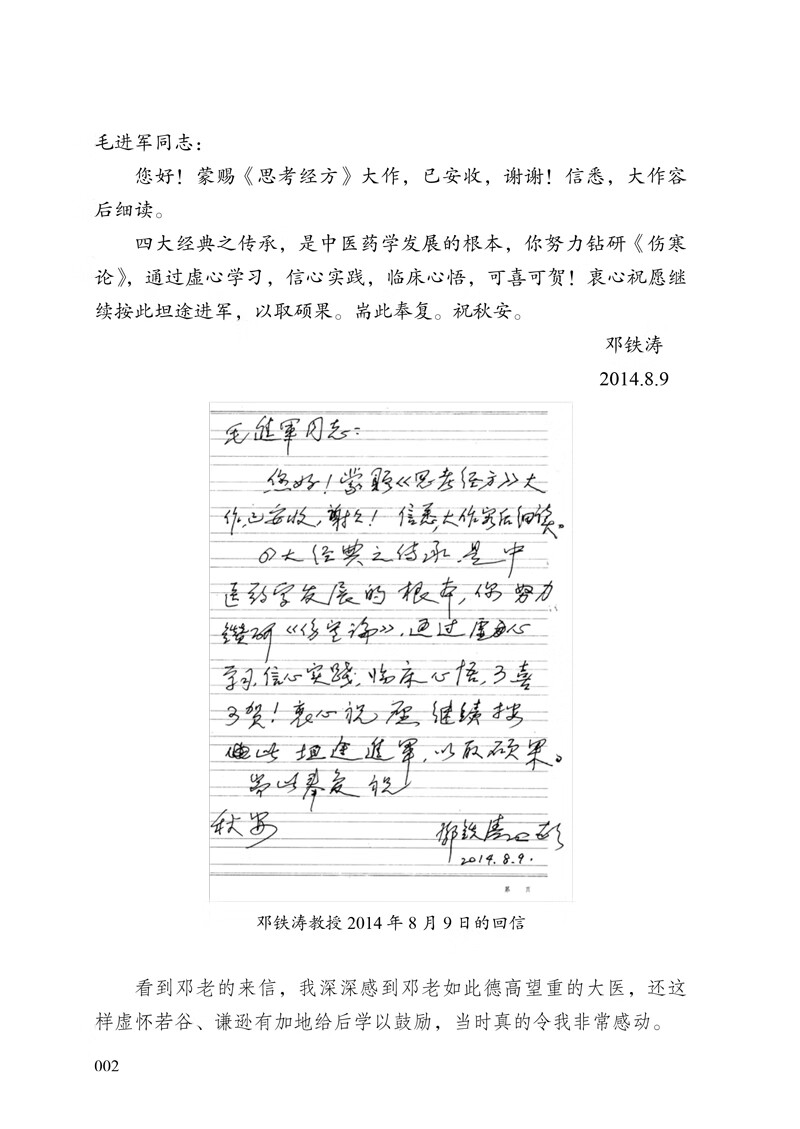 毛进军同志：
您好！蒙赐《思考经方》大作，已安收，谢谢！信悉，大作容
后细读。
四大经典之传承，是中医药学发展的根本，你努力钻研《伤寒
论》，通过虚心学习，信心实践，临床心悟，可喜可贺！衷心祝愿继
续按此坦途进军，以取硕果。耑此奉复。祝秋安。
邓铁涛
2014.8.9
毛進軍同志：
您好！蒙赐《思考经方》大
作，已安收，谢谢！信悉，大作容后细读。
四大经典之传承，是中
医药学发展的根本，你努力
鑽研《伤寒论》，通过虚心
学习，信心实践，临床心悟，可喜
可贺！衷心祝愿继续按
此坦途進軍，以取硕果。
耑此奉复 祝
秋安
邓铁涛
2014.8.9.
第 页
邓铁涛教授 2014 年 8 月 9 日的回信
看到邓老的来信，我深深感到邓老如此德高望重的大医，还这
样虚怀若谷、谦逊有加地给后学以鼓励，当时真的令我非常感动。
002